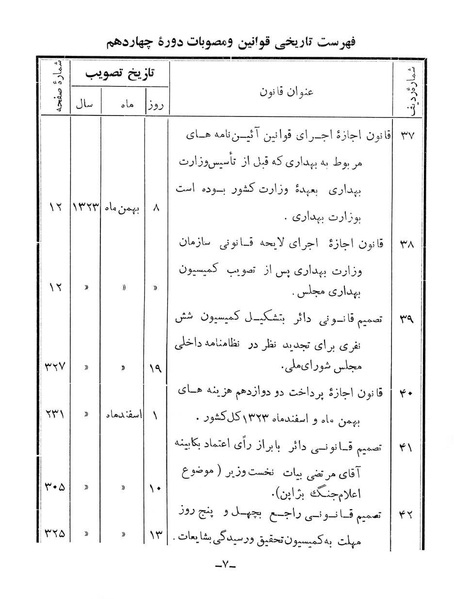 فهرست تاریخی قوانین ومصوبات دورهٔ چهاردهم
شمارهٔ ردیف
عنوان قانون
تاریخ تصویب
روز
ماه
سال
شمارهٔ صفحه
۳۷ قانون اجازهٔ اجرای قوانین آئین‌نامه های
مربوط به بهداری که قبل از تأسیس وزارت
بهداری بعهدهٔ وزارت کشور بوده است
بوزارت بهداری . ۸ بهمن ماه ۱۳۲۳ ۱۲
۳۸ قانون اجازهٔ اجرای لایحه قانونی سازمان
وزارت بهداری پس از تصویب کمیسیون
بهداری مجلس . » » » ۱۲
۳۹ تصمیم قانونی دائر بتشکیل کمیسیون شش
نفری برای تجدید نظر در نظامنامه داخلی
مجلس شورای‌ملی . ۱۹ » » ۳۲۷
۴۰ قانون اجازهٔ پرداخت دو دوازدهم هزینه های
بهمن ماه و اسفندماه ۱۳۲۳ کل کشور . ۱ اسفندماه » ۲۳۱
۴۱ تصمیم قانونی دائر بابراز رأی اعتماد بکابینه
آقای مرتضی بیات نخست وزیر ( موضوع
اعلام جنگ بژاپن) . ۱۰ » » ۳۰۵
۴۲ تصمیم قانونی راجع بچهل و پنج روز
مهلت به کمیسیون تحقیق ورسیدگی بشایعات . ۱۳ » » ۳۲۵
–۷–